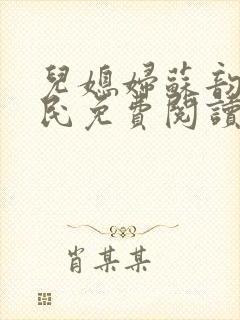 兒媳婦蘇韵
民免費閱讀
肖某某